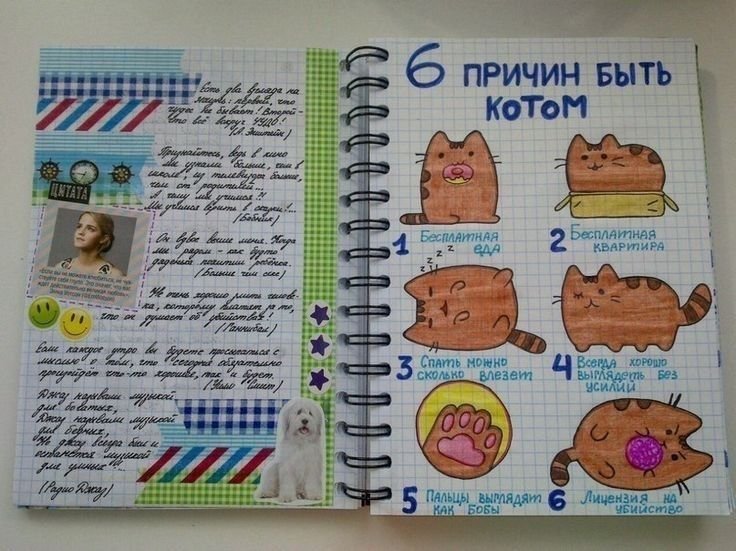 Есть два взгляда на
жизнь: первый, что
чудес не бывает! Второй-
что всё вокруг ЧУДО!
(А. Энштейн)
Признайтесь, ведь в кино
мы узнали больше, чем в
школе, из телевизора больше,
чем от родителей...
А чему мы учимся?!
Мы учимся врать в сказки!...
ЦИТАТА
Он вдвое выше меня. Когда
мы рядом - как будто
дяденька похитил ребёнка.
(Больше чем секс)
«Если вы не можете влюбиться, не чув-
ствуйте себя глупо. Это значит, что вас
ждёт действительно великая любовь».
Эмма Уотсон
Не очень хорошо злить челове-
ка, которому платят за то,
что он думает об убийствах!
(Ганнибал)
Если каждое утро вы будете просыпаться с
мыслью о том, что сегодня обязательно
произойдёт что-то хорошее, так и будет.
(Уилл Смит)
Джаз называли музыкой
для богатых,
Джаз называли музыкой
для бедных,
Но джаз всегда был и
останется музыкой
для умных"!...
(Радио Джаз)
6 ПРИЧИН БЫТЬ
КОТОМ
1 Бесплатная
еда
2 Бесплатная
квартира
z z z z z
3 Спать можно
сколько влезет
4 Всегда хорошо
выглядеть без
усилий
5 Пальцы выглядят
как бобы
6 Лицензия на
убийство